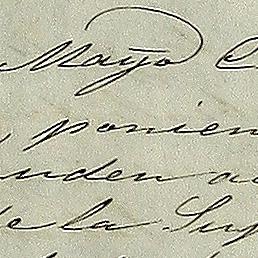 Mayo
ponien
uden a
de la Sup